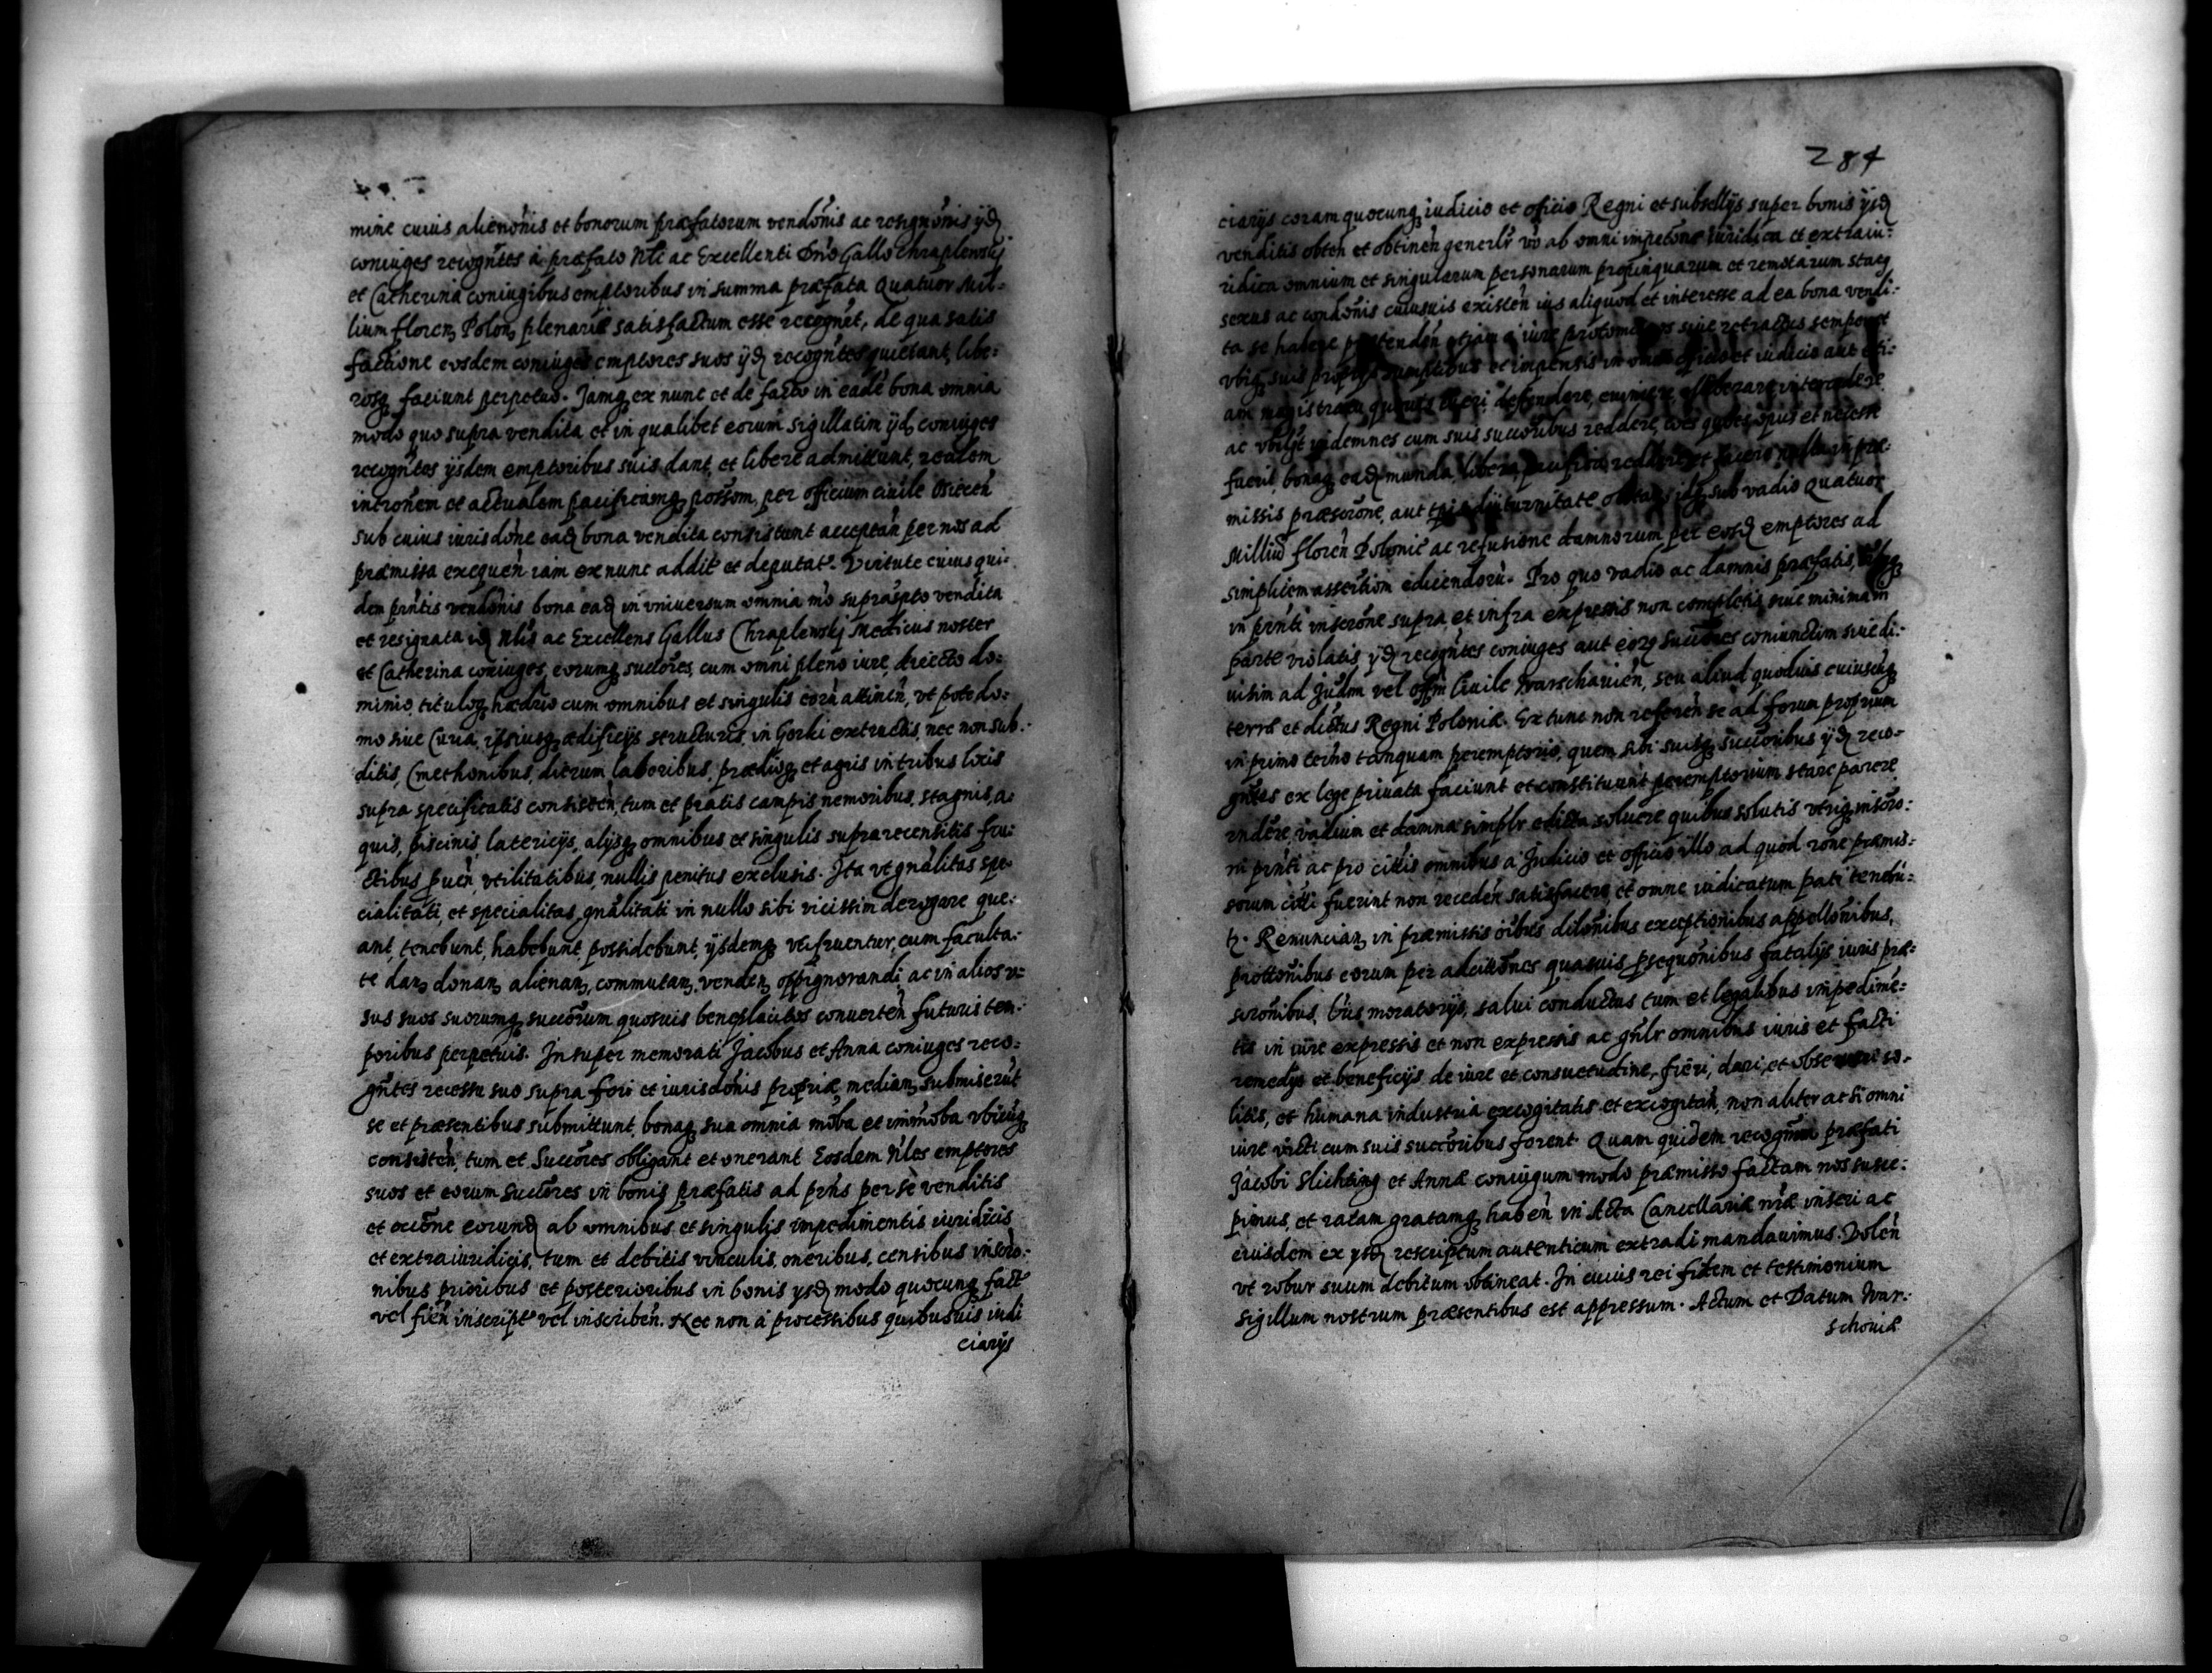 mine cuius alienõnis et bonorum præfatorum vendõnis ac resignõnis ijdẽ
coniuges recogñtes à præfato Nli ac Excellenti Dño Gallo Chraplewskj
et Catherina coniugibus emptoribus in summa præfata Quatuor Mil:
lium floreñ Poloñ plenariè satisfactum esse recognẽt, de qua satis
factione eosdem coniuges emptores suos ijdẽ recogñtes quietant, libe:
rosq faciunt perpetuo. Jamq ex nunc et de facto in eadẽ bona omnia
modo quo supra vendita et in qualibet eorum sigillatim ijdẽ coniuges
recogñtes ijsdem emptoribus suis dant et libere admittunt, realem
intronem et actualem pacificamq possom, per officium civile
sub cuius iurisdõne eadẽ bona vendita consistunt acceptañ per nos ad
præmissa exequeñ iam ex nunc addit et deputat. Virtute cuius qui:
dem pñtis vendõnis bona eadẽ in vniuersum omnia mõ suprascpto vendita
et resignata idẽ Nlis ac Excellens Gallus Chraplewskj Medicus noster
et Catherina coniuges, eorumq succõres, cum omni pleno iure, directo do:
minio, tituloq hædrio cum omnibus et singulis eorũ attineñ, vt pote do:
mo siue Curia, ipsiusq ædificijs structuris, in Gorki extructis, nec non sub:
ditis, Cmethonibus, dierum laboribus, prædijsq et agris in tribus locis
supra specificatis consisteñ, tum et pratis campis nemoribus, stagnis, a:
quis, piscinis, latericijs, alijsq omnibus et singulis supra recensitis fru:
ctibus pueñ vtilitatibus, nullis penitus exclusis. Ita vt gnãlitas spe:
cialitati, et specialitas gnãlitati in nullo sibi vicissim derogare que:
ant, tenebunt, habebunt, possidebunt, ijsdemq vtifruentur, cum faculta:
te dañ donañ alienañ, commutañ, vendeñ oppignorandi, ac in alios v:
sus suos suorumq succõrum quosuis beneplacitos conuerteñ futuris tem:
poribus perpetuis. Insuper memorati Jacobus et Anna coniuges reco:
gñtes recessu suo supra fori et iurisdõnis propriæ, mediañ, submiserũt
se et præsentibus submittunt, bonaq sua omnia mõba et immõba vbiuisq
consisteñ, tum et Succõres obligant et onerant Eosdem Nles emptores
suos et eorum Succõres in bonis præfatis ad pñs per sè venditis
et occõne eorundẽ ab omnibus et singulis impedimentis iuridicis
et extraiuridicis, tum et debitis vinculis, oneribus, censibus inscro:
nibus prioribus et posterioribus in bonis ysdẽ modo quocunq fact
vel fieñ inscript vel inscribeñ. Nec non à processibus quibusuis iudi
ciarijs
284
ciarijs coram quocunq iudicio et officio Regni et subsellijs super bonis ijsdẽ
venditis obteñ et obtineñ generlr vò ab omni impetõne iuridica et extraiu:
ridica omnium et singularum personarum propinquarum et remotarum statq
sexus ac condõnis cuiusuis existeñ ius aliquod et interesse ad ea bona vendi:
ta se habere prætendeñ etiam à iure protomiseos siue retractus semper et
vbiq suis proprijs sumptibus et impensis in omni officio et iudicio aut eti:
am magistratu quouis tueri, defendere, euincere, elliberare intercedere
ac vbilibt indemnes cum suis succõribus reddere, toties quoties opus et necesse
fuerit, bonaq eadẽ munda libera reddere et facere nulla in præ:
missis præscrõne, aut tpis diuturnitate idq sub vadio Quatuor
Milliũ floreñ Poloniè ac refusione damnorum per eosdẽ emptores ad
simplicem assertiõm edicendorũ. Pro quo vadio ac damnis præfatis,
in pñti inscrõne supra et infra expressis non completis, siue minima in
parte violatis ydẽ recogñtes coniuges aut eorq Succõres coniunctim siue di:
uisim ad Judm vel offm Ciuile Warschauieñ, seu aliud quoduis cuiuscuq
terræ et districtus Regni Poloniæ. Ex tunc non refereñ se ad forum proprium
in primo termo tanquam peremptorio, quem sibi suisq succõribus ydẽ reco:
gñtes ex lege priuata faciunt et constituunt peremptorium stare parere
rndere, vadium et damna simplr edicta soluere quibus solutis vtriq inscro:
ni pñti ac pro citis omnibus à Judicio et officio illo ad quod rone præmis:
sorum citti fuerint non recedeñ satisfacere, et omne iudicatum pati tenebu:
tz. Renunciañ in præmissis õibus dilõnibus exceptionibus appellõnibus,
prottõnibus eorum per adcittõnes quasuis psequõnibus fatalijs iuris præ:
scrõnibus, Lris moratorijs, salui conductus tum et legalibus impedimẽ:
tis in iũre expressis et non expressis ac gñlr omnibus iuris et facti
remedijs et beneficijs de iure et consuetudine, fieri, dari, et obseruari so:
litis, et humana industria excogitatis et excogitañ, non aliter ac si omni
iure victi cum suis succõribus forent. Quam quidem recognem præfati
Jacobi Slichting et Annæ coniugum modo præmisso factam nos susce:
pimus, et ratam gratamq habeñ in Acta Cancellariæ nræ inseri ac
eiusdem ex ysdẽ rescriptum autenticum extradi mandauimus. Voleñ
vt robur suum debitum obtineat. In cuius rei fidem et testimonium
sigillum nostrum præsentibus est appressum. Actum et Datum War:
schouiæ